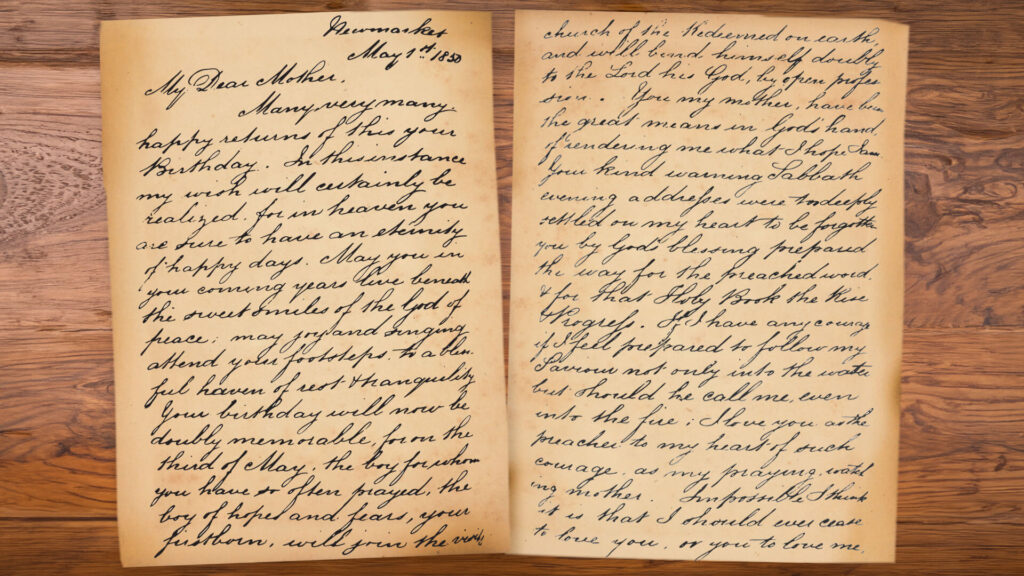 Newmarket
May 1st. 1850
My Dear Mother,
Many very many
happy returns of this your
Birthday. In this instance
my wish will certainly be
realized, for in heaven you
are sure to have an eternity
of happy days. May you in
your coming years live beneath
the sweet smiles of the God of
peace; may joy and singing
attend your footsteps, to a bliss
ful haven of rest & tranquility
Your birthday will now be
doubly memorable, for on the
third of May, the boy for whom
you have so often prayed, the
boy of hopes and fears, your
firstborn, will join the visible
church of the Redeemed on earth,
and will bind himself doubly
to the Lord his God, by open profes
sion. You my mother, have been
the great means in God's hand
of rendering me what I hope I am.
Your kind warning Sabbath
evening addresses were too deeply
settled on my heart to be forgotten
you by God's blessing prepared
the way for the preached word,
& for that Holy Book the Rise
& Progress. If I have any courage
if I feel prepared to follow my
Saviour not only into the water
but should he call me, even
into the fire; I love you as the
preacher to my heart of such
courage, as my praying, watch
ing mother. Impossible, I think
it is that I should ever cease
to love you, or you to love me,